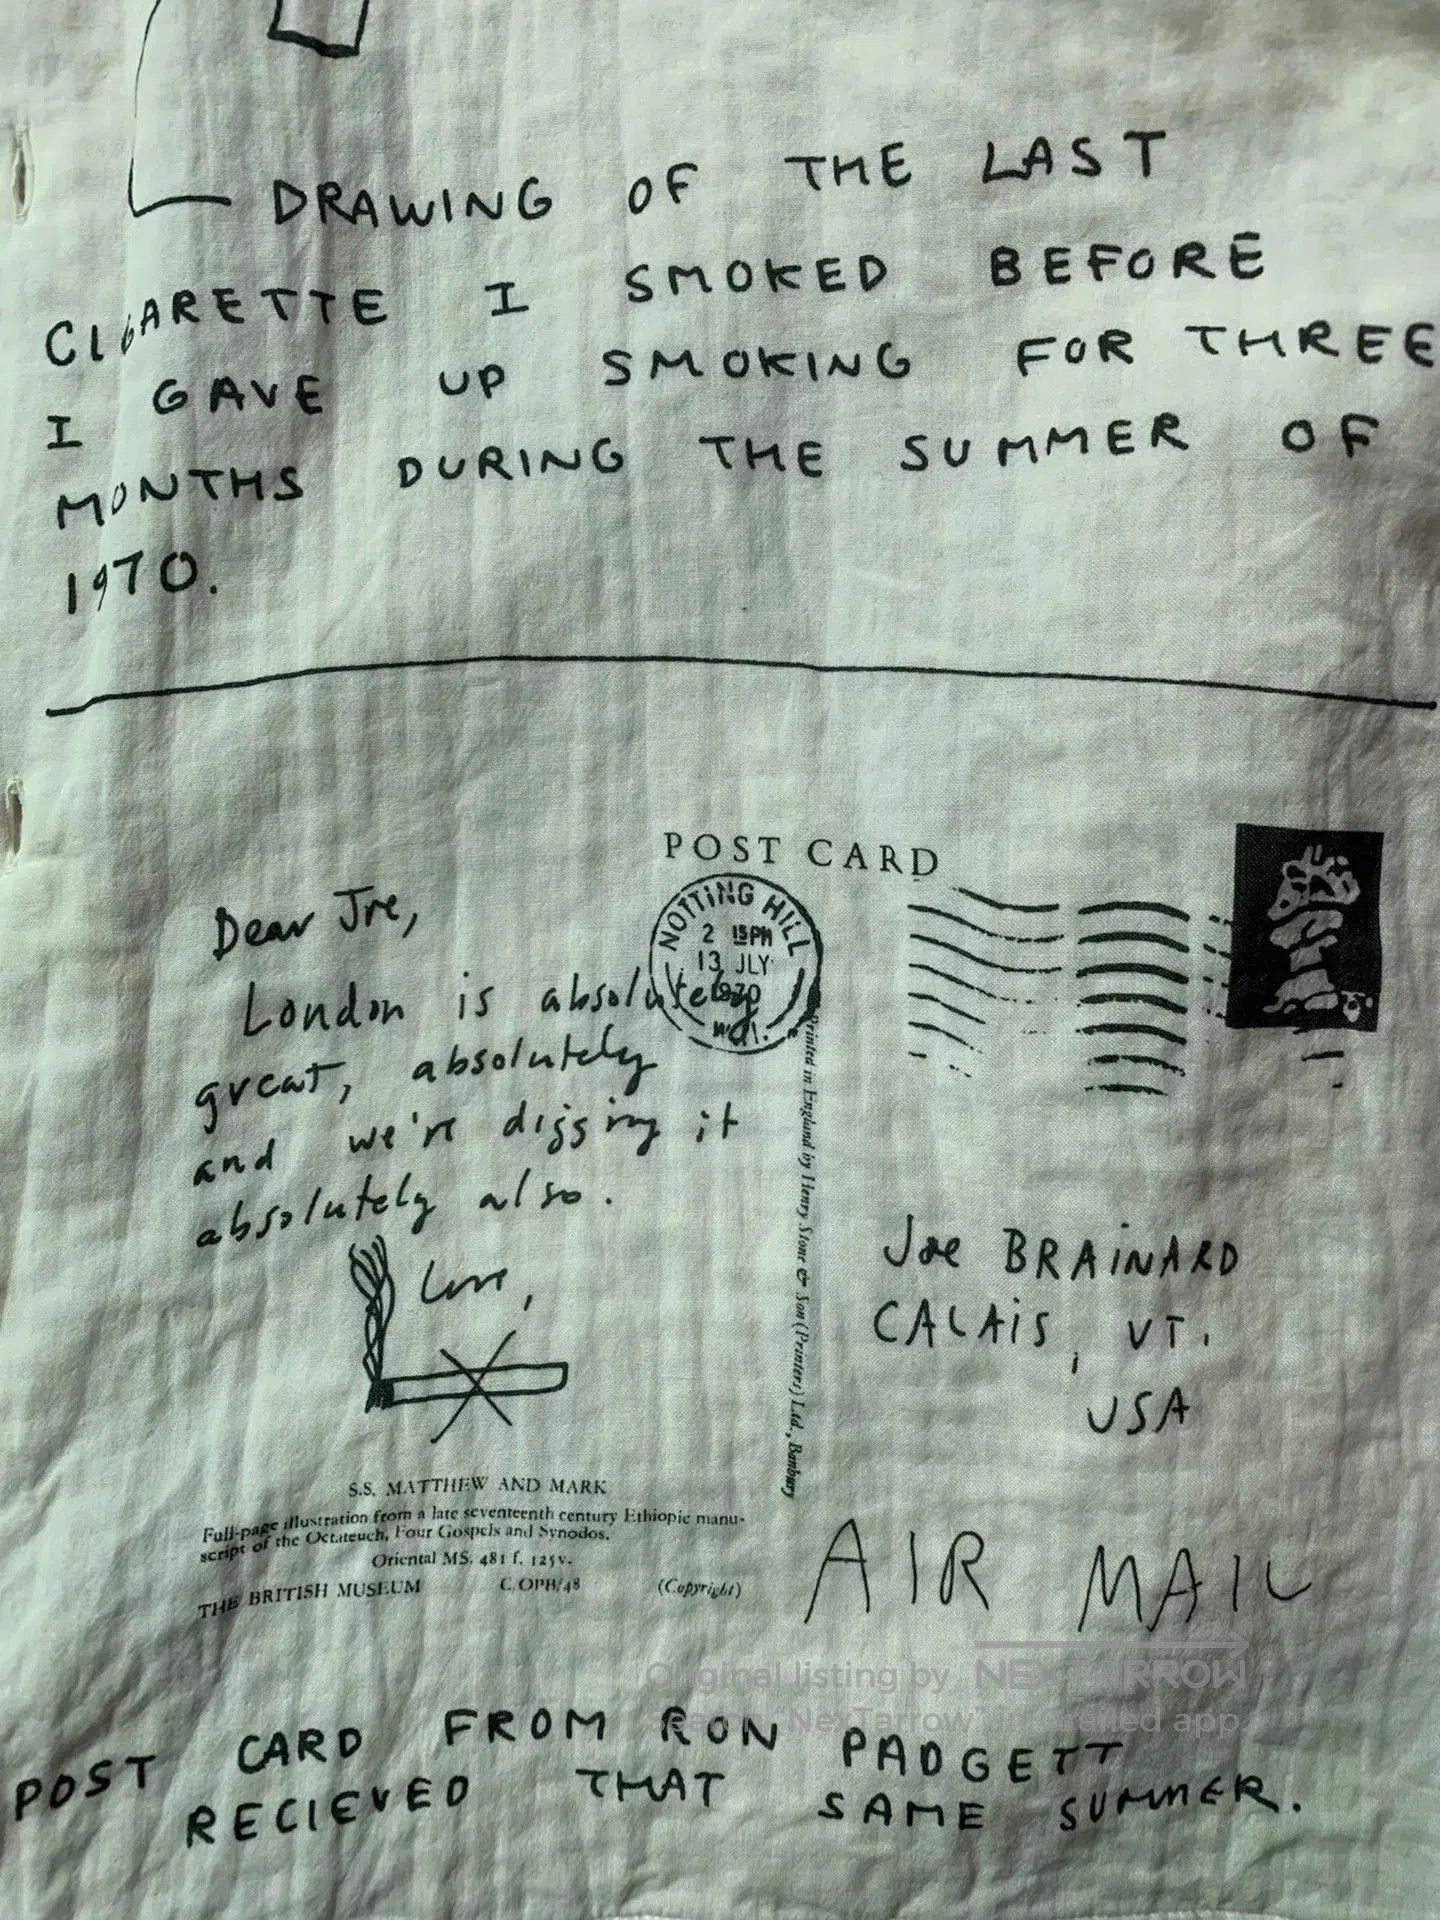 DRAWING OF THE LAST
CIGARETTE I SMOKED BEFORE
I GAVE UP SMOKING FOR THREE
MONTHS DURING THE SUMMER OF
1970.
POST CARD
NOTTING HILL
2 15PM
13 JLY
1970
W.11.
Dear Joe,
London is absolutely
great, absolutely
and we're digging it
absolutely also.
Love,
Printed in England by Henry Stone & Son (Printers) Ltd., Banbury
Joe BRAINARD
CALAIS, VT.
USA
S.S. MATTHEW AND MARK
Full-page illustration from a late seventeenth century Ethiopic manu-
script of the Octateuch, Four Gospels and Synodos.
Oriental MS. 481 f. 125v.
THE BRITISH MUSEUM C/OPH/48 (Copyright)
AIR MAIL
Original listing by NEXTARROW
NexTarrow app.
POST CARD FROM RON PADGETT
RECIEVED THAT SAME SUMMER.